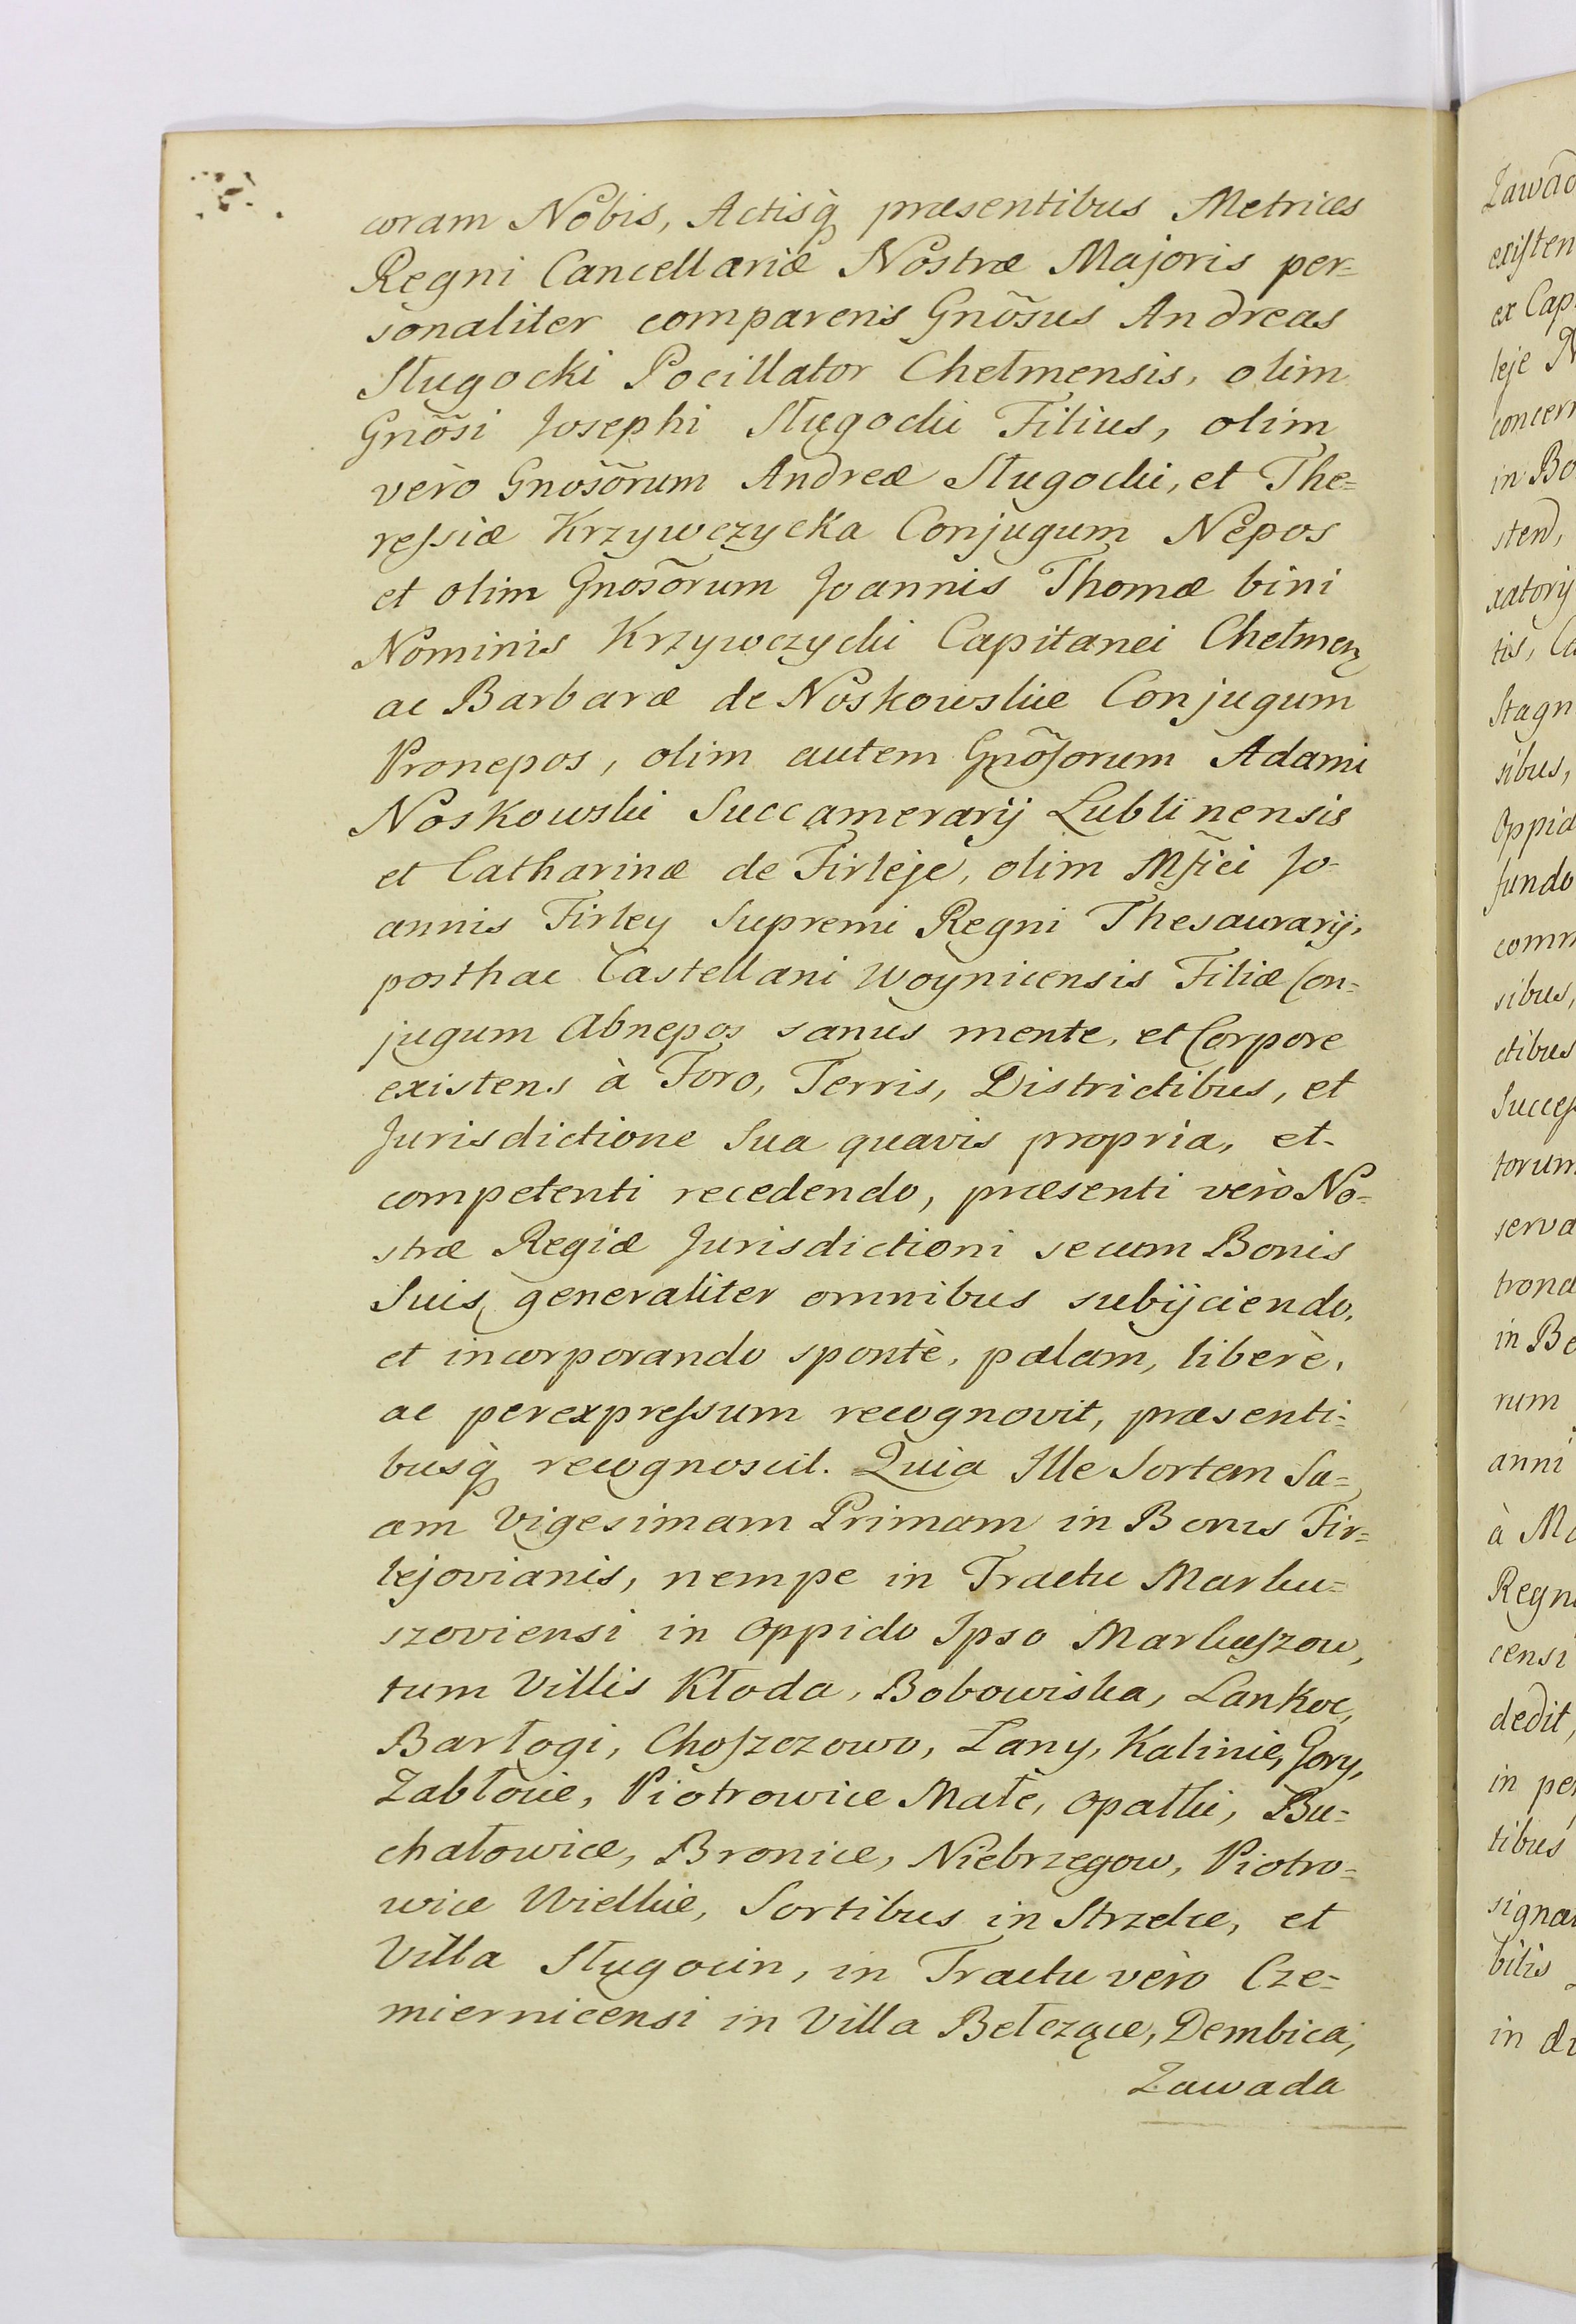 coram Nobis, Actisq̀ præsentibus Metrices
Regni Cancellariæ Nostræ Majoris per=
sonaliter comparens Gnõsus Andreas
Sługocki Pocillator Chełmensis, olim
Gnõsi Josephi Sługocki Filius, olim
verò Gnosõrum Andreæ Sługocki, et The=
reſsiæ Krzywczycka Conjugum Nepos
et olim Gnosõrum Joannis Thomæ bini
Nominis Krzywczycki Capitanei Chełmen̄
ac Barbaræ de Noskowskie Conjugum
Pronepos, olim autem Gnõſorum Adami
Noskowski Succamerarij Lublinensis
et Catharinæ de Firleje, olim Mf̃ici Jo-
annis Firley Supremi Regni Thesaurarij,
posthac Castellani Woynicensis Filiæ Con=
jugum Abnepos sanus mente, et Corpore
existens à Foro, Terris, Districtibus, et
Jurisdictione Sua quavis propria, et
competenti recedendo, præsenti verò No=
stræ Regiæ Jurisdictioni secum Bonis
Suis generaliter omnibus subijciendo,
et incorporando spontè, palam, liberè,
ac perexpreſsum recognovit, præsenti=
busq̀ recognoscit. Quia Ille Sortem Su=
am Vigesimam Primam in Bonis Fir=
lejovianis, nempe in Tractu Marku=
szoviensi in Oppido Ipso Markuſzow,
tum Villis Kłoda, Bobowiska, Lankoc,
Barłogi, Choſzczowo, Łany, Kalinie, Gory,
Zabłoúe, Piotrowice Małe, Opatki, Bu=
chałowice, Bronice, Niebrzegow, Piotro=
wice Wielkie, Sortibus in Strzelce, et
Villa Sługocin, in Tractu verò Cze=
miernicensi in Villa Bełczące, Dembica,
Zawada
Zawad
exiſten
ex Cap
leje N
concern
in Bo
stend,
xatorij
tis, Ca
Stagn
sibus,
Oppid
fundo
comm
sibus,
ctibus
Succeſ
torum
serva
trona
in Bo
rum
anni
à Ma
Regni
censi
dedit,
in per
tibus
signa
bilis
in d